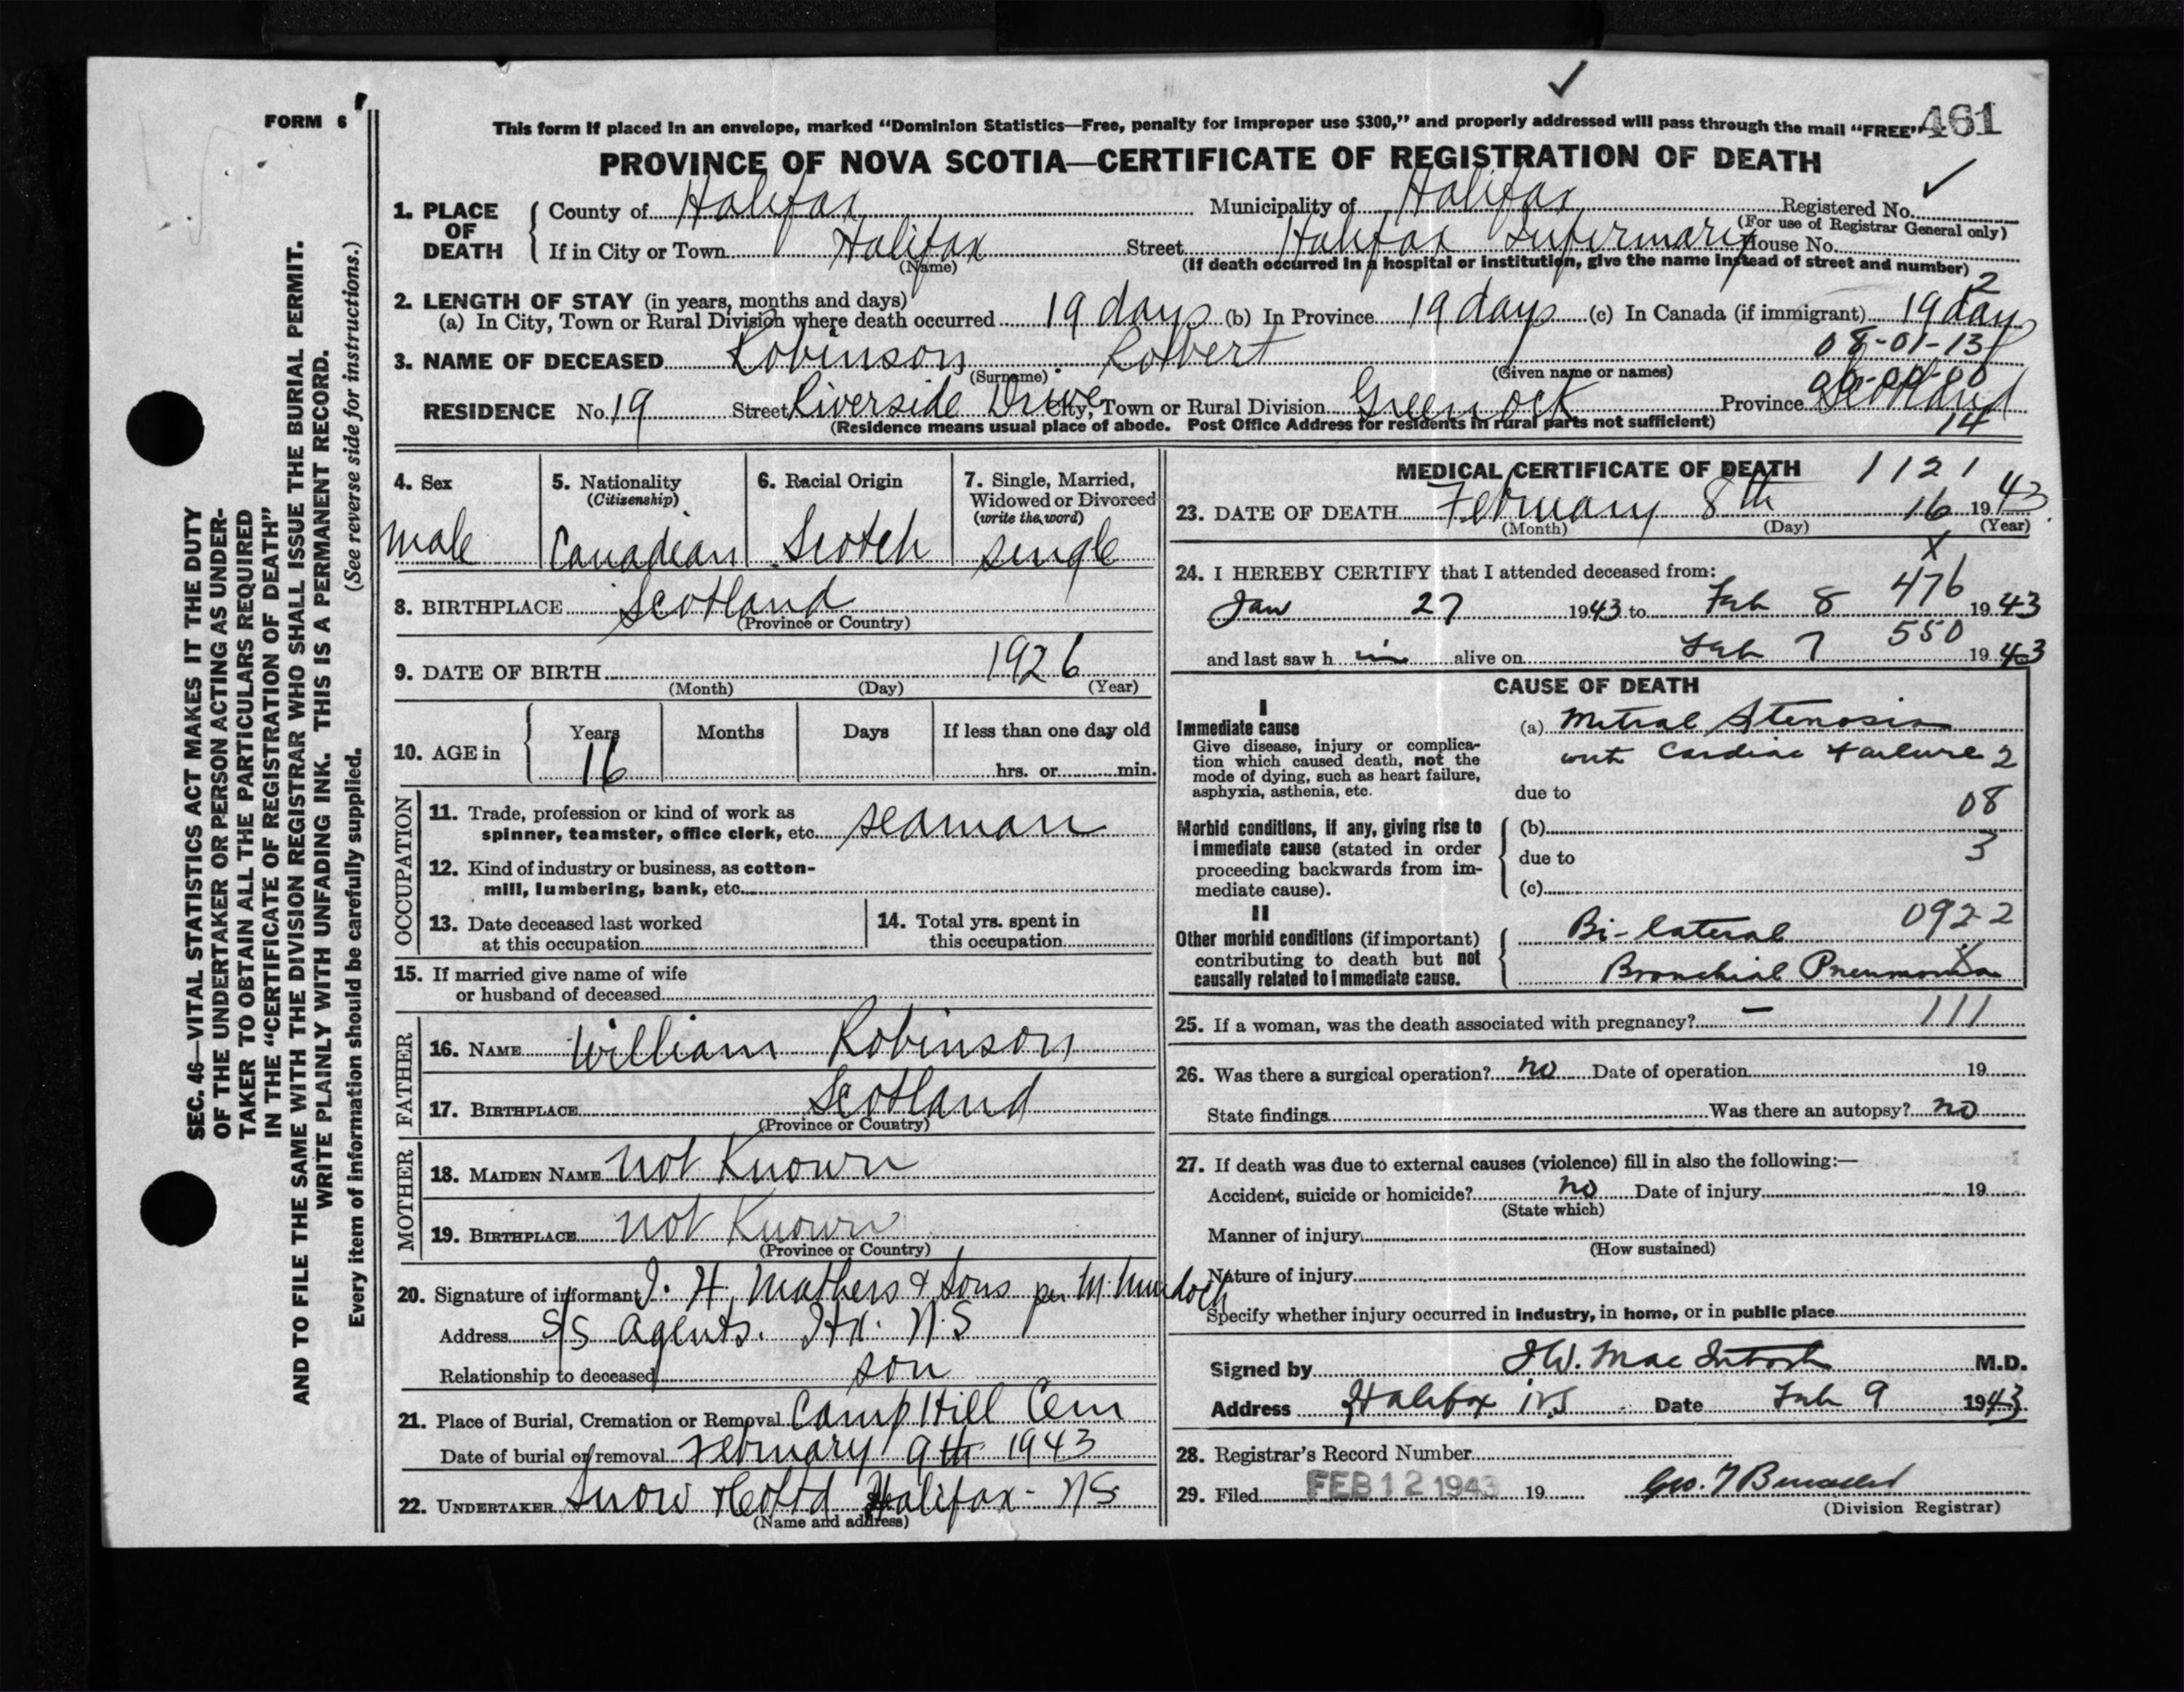 FORM 6
This form if placed in an envelope, marked "Dominion Statistics—Free, penalty for improper use $300," and properly addressed will pass through the mail "FREE"
461
PROVINCE OF NOVA SCOTIA—CERTIFICATE OF REGISTRATION OF DEATH
1. PLACE OF DEATH
County of Halifax Municipality of Halifax Registered No.
(For use of Registrar General only)
If in City or Town Halifax Street Halifax Infirmary House No.
(Name) (If death occurred in a hospital or institution, give the name instead of street and number)
2
2. LENGTH OF STAY (in years, months and days)
(a) In City, Town or Rural Division where death occurred 19 days (b) In Province 19 days (c) In Canada (if immigrant) 19 days
08-01-13
3. NAME OF DECEASED Robinson, Robert
(Surname) (Given name or names)
00-00-00
RESIDENCE No. 19 Street Riverside Drive City, Town or Rural Division Greenock Province Scotland
(Residence means usual place of abode. Post Office Address for residents in rural parts not sufficient)
14
4. Sex
male
5. Nationality
(Citizenship)
Canadian
6. Racial Origin
Scotch
7. Single, Married,
Widowed or Divorced
(write the word)
single
8. BIRTHPLACE Scotland
(Province or Country)
9. DATE OF BIRTH 1926
(Month) (Day) (Year)
10. AGE in
Years Months Days If less than one day old
16 hrs. or min.
OCCUPATION
11. Trade, profession or kind of work as
spinner, teamster, office clerk, etc. seaman
12. Kind of industry or business, as cotton-
mill, lumbering, bank, etc.
13. Date deceased last worked
at this occupation
14. Total yrs. spent in
this occupation
15. If married give name of wife
or husband of deceased
FATHER
16. NAME William Robinson
17. BIRTHPLACE Scotland
(Province or Country)
MOTHER
18. MAIDEN NAME not Known
19. BIRTHPLACE not Known
(Province or Country)
20. Signature of informant I. H. Mathers & Sons per M. Murdoch
Address S/S Agents. Hx. N.S
Relationship to deceased son
21. Place of Burial, Cremation or Removal Camp Hill Cem
Date of burial or removal February 9th 1943
22. UNDERTAKER Snow & Co Ltd Halifax - NS
(Name and address)
MEDICAL CERTIFICATE OF DEATH
1121
23. DATE OF DEATH February 8th 16 1943
(Month) (Day) (Year)
X
24. I HEREBY CERTIFY that I attended deceased from:
476
Jan 27 1943 to Feb 8 1943
550
and last saw h im alive on Feb 7 1943
CAUSE OF DEATH
I
Immediate cause
Give disease, injury or complica-
tion which caused death, not the
mode of dying, such as heart failure,
asphyxia, asthenia, etc.
(a) Mitral Stenosis
with Cardiac Failure 2
due to
08
Morbid conditions, if any, giving rise to
immediate cause (stated in order
proceeding backwards from im-
mediate cause).
(b)
due to
3
(c)
II
Other morbid conditions (if important)
contributing to death but not
causally related to immediate cause.
Bi-lateral 092-2
Bronchial Pneumonia
X
25. If a woman, was the death associated with pregnancy? – 111
26. Was there a surgical operation? no Date of operation 19
State findings Was there an autopsy? no
27. If death was due to external causes (violence) fill in also the following:—
Accident, suicide or homicide? no Date of injury 19
(State which)
Manner of injury
(How sustained)
Nature of injury
Specify whether injury occurred in industry, in home, or in public place
Signed by J W. MacIntosh M.D.
Address Halifax N.S Date Feb 9 1943
28. Registrar's Record Number
29. Filed FEB 12 1943 19 Geo. 
(Division Registrar)
SEC. 46—VITAL STATISTICS ACT MAKES IT THE DUTY
OF THE UNDERTAKER OR PERSON ACTING AS UNDER-
TAKER TO OBTAIN ALL THE PARTICULARS REQUIRED
IN THE "CERTIFICATE OF REGISTRATION OF DEATH"
AND TO FILE THE SAME WITH THE DIVISION REGISTRAR WHO SHALL ISSUE THE BURIAL PERMIT.
WRITE PLAINLY WITH UNFADING INK. THIS IS A PERMANENT RECORD.
Every item of information should be carefully supplied. (See reverse side for instructions.)